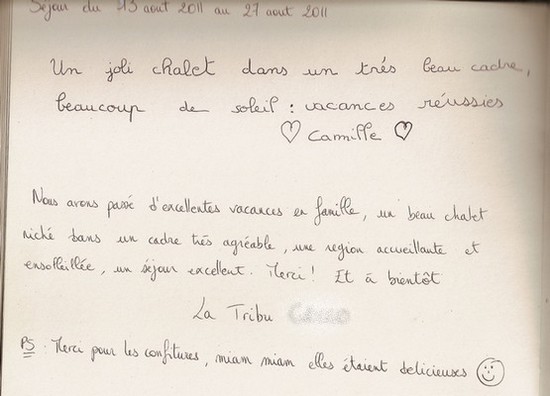 Séjour du 13 aout 2011 au 27 aout 2011
Un joli chalet dans un trés beau cadre,
beaucoup de soleil : vacances réussies
♡ Camille ♡
Nous avons passé d'excellentes vacances en famille, un beau chalet
niché dans un cadre très agréable, une region accueillante et
ensolleillée, un séjour excellent. Merci ! Et à bientôt
La Tribu
PS : Merci pour les confitures, miam miam elles étaient delicieuses ☺